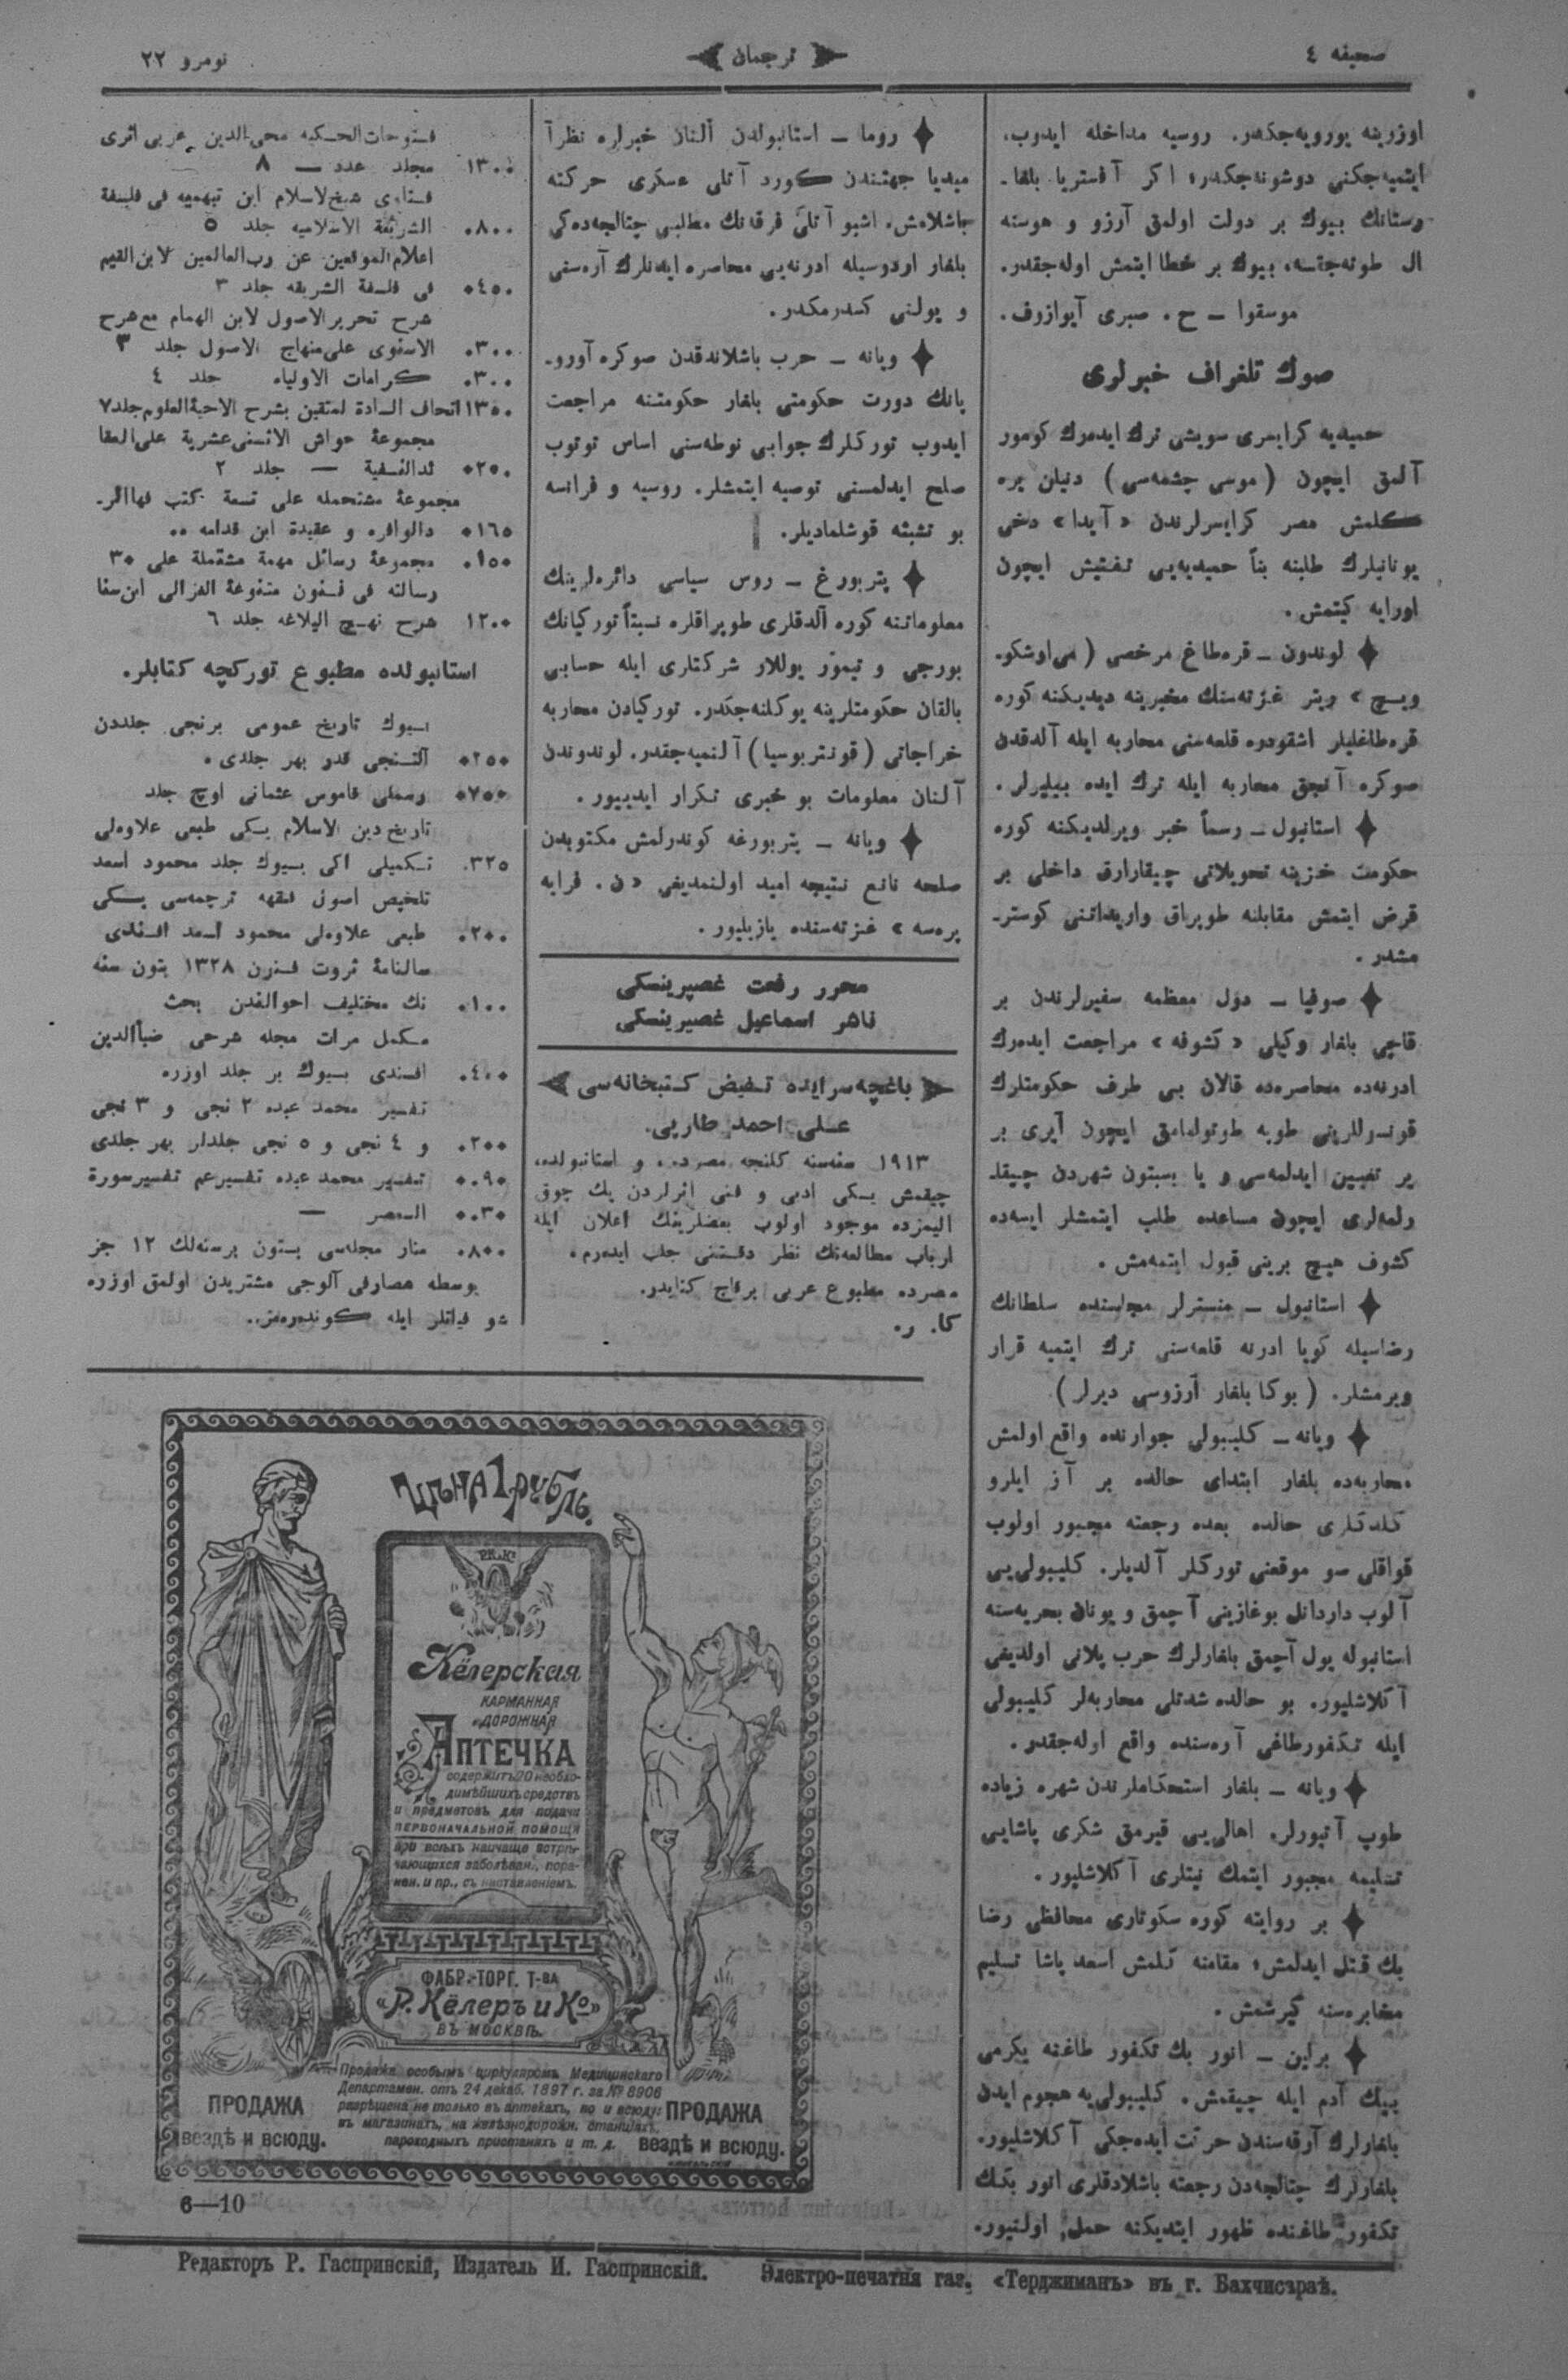 صحیفه ٤
ترجمان
نومرو ٢٢
اوزرینه یورویه‌جکدر. روسیه مداخله ایدوب،
ایتمیه‌جکنی دوشونه‌جکدر؛ اکر آفستریا بلغا-
رستانك بیوك بر دولت اولمق آرزو و هوسنه
ال طوته‌جقسه، بیوك بر خطا ایتمش اوله‌جقدر.
موسقوا – ح. صبری آیوازوف.
صوك تلغراف خبرلری
حمیدیه کرایسری سویشی ترك ایدەرك کومور
آلمق ایچون (موسی چشمه‌سی) دنیلن یره
کلمش مصر کرایسرلرندن «آیدا» دخی
یونانیلرك طلبنه بناً حمیدیه‌یی تفتیش ایچون
اورایه کیتمش.
لوندون – قره‌طاغ مرخصی (می‌اوشکو-
ویچ» ریتر غزته‌سنك مخبرینه دیدیکنه کوره
قره‌طاغلیلر اشقودره قلعه‌سنی محاربه ایله آلدقدن
صوکره آنجق محاربه ایله ترك ایده بیلیرلر.
استانبول – رسماً خبر ویرلدیکنه کوره
حکومت خزینه تحویلاتی چیقارارق داخلی بر
قرض ایتمش مقابلنه طوپراق وارداتنی کوستر-
مشدر.
صوفیا – دول معظمه سفیرلرندن بر
قاچی بلغار وکیلی «کشوفه» مراجعت ایدەرك
ادرنه‌ده محاصره‌ده قالان بی طرف حکومتلرك
قونسوللرینی طوپه طوتولمامق ایچون آیری بر
یر تعیین ایدلمه‌سی و یا بسبتون شهردن چیقا-
رلمه‌لری ایچون مساعده طلب ایتمشلر ایسه‌ده
کشوف هیچ برینی قبول ایتمه‌مش.
استانبول – منسترلر مجلسنده سلطانك
رضاسیله کویا ادرنه قلعه‌سنی ترك ایتمیه قرار
ویرمشلر. (بوکا بلغار آرزوسی دیرلر)
ویانه – کلیبولی جوارنده واقع اولمش
محاربه‌ده بلغار ابتدای حالده بر آز ایلرو
کلدکلری حالده بعده رجعته مجبور اولوب
قواقلی صو موقعنی تورکلر آلدیلر. کلیبولی‌یی
آلوب داردانل بوغازینی آچمق و یونان بحریه‌سنه
استانبوله یول آچمق بلغارلرك حرب پلانی اولدیغی
آکلاشلیور. بو حالده شدتلی محاربه‌لر کلیبولی
ایله تکفورطاغی آره‌سنده واقع اوله‌جقدر.
ویانه – بلغار استحکاملرندن شهره زیاده
طوپ آتیورلر. اهالی‌یی قیرمق شکری پاشایی
تسلیمه مجبور ایتمك نیتلری آکلاشلیور.
بر روایته کوره سکوتاری محافظی رضا
بك قتل ایدلمش؛ مقامنه کلمش اسعد پاشا تسلیم
مخابره‌سنه کیرشمش.
برلین – انور بك تکفور طاغنه یکرمی
بیك آدم ایله چیقمش. کلیبولی‌یه هجوم ایدن
بلغارلرك آرقه‌سندن حرکت ایده‌جکی آکلاشلیور.
بلغارلرك چتالجه‌دن رجعته باشلادقلری انور بکك
تکفور طاغنده ظهور ایتدیکنه حمل اولنیور.
روما – استانبولدن آلنان خبرلره نظراً
میدیا جهتندن کورد آتلی عسکری حرکته
باشلامش. اشبو آتلی فرقه‌نك مطلبی چتالجه‌ده‌کی
بلغار اردوسیله ادرنه‌یی محاصره ایدنلرك آره‌سنی
و یولنی کسدرمکدر.
ویانه – حرب باشلاندقدن صوکره آورو-
پانك دورت حکومتی بلغار حکومتنه مراجعت
ایدوب تورکلرك جوابی نوطه‌سنی اساس توتوب
صلح ایدلمسنی توصیه ایتمشلر. روسیه و فرانسه
بو تشبثه قوشلمادیلر.
پتربورغ – روس سیاسی دائره‌لرینك
معلوماتنه کوره آلدقلری طوپراقلره نسبتاً تورکیانك
بورجی و تیمور یوللار شرکتلری ایله حسابی
بالقان حکومتلرینه یوکلنه‌جکدر. تورکیادن محاربه
خراجاتی (قونتربوسیا) آلنمیه‌جقدر. لوندوندن
آلنان معلومات بو خبری تکرار ایدییور.
ویانه – پتربورغه کوندرلمش مکتوبدن
صلحه نافع نتیجه امید اولنمدیغی «ن. فرایه
پره‌سه» غزته‌سنده یازیلیور.
محرر رفعت غصپرینسکی
ناشر اسماعیل غصپرینسکی
باغچه‌سرایده تفیض کتبخانه‌سی
علی احمد طارپی.
١٩١٣ سنه‌سنه کلنجه مصرده، و استانبولده،
چیقمش یکی ادبی و فنی اثرلردن پك چوق
الیمزده موجود اولوب بعضلرینك اعلان ایله
ارباب مطالعه‌نك نظر دقتنی جلب ایدەرم.
مصرده مطبوع عربی برقاچ کتابدر.
کا. ر.
فتوحات‌المکیه محی‌الدین عربی اثری
مجلد عدد — ٨ ١٣٠٠
فتاوی شیخ‌لاسلام ابن تیهمیه فی فلسفة
الشریعة الاسلامیه جلد ٥ ٨٠٠.
اعلام الموقعین عن رب‌العالمین لابن القیم
فی فلسفة الشریعه جلد ٣ ٤٥٠.
شرح تحریر الاصول لابن الهمام مع شرح
الاسنوی علی منهاج الاصول جلد ٣ ٣٠٠.
کرامات الاولیاء جلد ٤ ٣٠٠.
اتحاف السادة لمتقین بشرح الاحیاءالعلوم جلد٧ ١٣٥٠
مجموعة حواش الاثنی‌عشریة علی‌العقا
ئدالنسفیة — جلد ٢ ٢٥٠.
مجموعة مشتحمله علی تسعة کتب
و عقیدة ابن قدامه ١٦٥.
مجموعة رسائل مهمة مشتملة علی ٣٠ ١٥٠.
رسالته فی فنون متنوعة الغزالی ابن‌سنا
شرح نهج البلاغه جلد ٦ ١٢٠٠
استانبولده مطبوع تورکچه کتابلر.
بیوك تاریخ عمومی برنجی جلددن
آلتنجی قدر بهر جلدی. ٢٥٠.
رسملی قاموس عثمانی اوچ جلد ٧٥٠.
تاریخ دین الاسلام یکی طبعی علاوه‌لی
تکمیلی اکی بیوك جلد محمود اسعد ٣٢٥.
تلخیص اصول فقهه ترجمه‌سی یکی
طبعی علاوه‌لی محمود اسعد افندی ٢٠٠.
سالنامۀ ثروت فنون ١٣٢٨ بتون سنه
نك مختلیف احوالندن بحث ١٠٠.
مکمل مرات مجله شرحی ضیاالدین
افندی بیوك بر جلد اوزره ٤٠٠.
تفسیر محمد عبده ٢ نجی و ٣ نجی
و ٤ نجی و ٥ نجی جلدلر بهر جلدی ٢٠٠.
تفسیر محمد عبده تفسیرعم تفسیرسورة ٠٩٠.
العصر — ٠٣٠.
منار مجله‌سی بتون برسنه‌لك ١٢ جز ٨٠٠.
پوسطه مصارفی آلوجی مشتریدن اولمق اوزره
شو فیاتلر ایله کوندەرەمز..
Цѣна 1 рубль.
Р.К. и Ко
Кёлерская
КАРМАННАЯ
и ДОРОЖНАЯ
АПТЕЧКА
содержитъ 20 необхо-
димѣйшихъ средствъ
и предметовъ для подачи
ПЕРВОНАЧАЛЬНОЙ ПОМОЩИ
при всѣхъ наичаще встрѣ-
чающихся заболѣван., пора-
нен. и пр., съ наставленіемъ.
ФАБР.-ТОРГ. Т-ва
«Р. Кёлеръ и Ко»
ВЪ МОСКВѢ.
Продажа особымъ циркуляромъ Медицинскаго
Департамен. отъ 24 декаб. 1897 г. за № 8906
разрѣшена не только въ аптекахъ, но и всюду:
въ магазинахъ, на желѣзнодорожн. станціяхъ,
пароходныхъ пристаняхъ и т. д.
ПРОДАЖА
вездѣ и всюду.
ПРОДАЖА
вездѣ и всюду.
6—10
Редакторъ Р. Гаспринскій, Издатель И. Гаспринскій. Электро-печатня газ. «Терджиманъ» въ г. Бахчисараѣ.